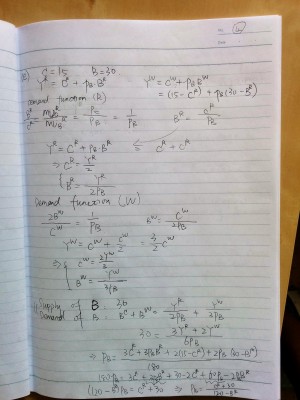 C = 15   B = 30
Y^R = C^R + P_B · B^R   Y^W = C^W + P_B B^W
= (15 - C^R) + P_B (30 - B^R)
Demand function (R)
= P_C / P_B = 1 / P_B   B^R = C^R / P_B
Y^R = C^R + P_B · B^R   ⇐   C^R + C^R
⇒ C^R = Y^R / 2
B^R = Y^R / 2P_B
Demand function (W)
2B^W / C^W = 1 / P_B   B^W = C^W / 2P_B
Y^W = C^W + C^W / 2 = 3/2 C^W
⇒ C^W = 2Y^W / 3
B^W = Y^W / 3P_B
Supply of B : 30
Demand of B : B^R + B^W = Y^R / 2P_B + Y^W / 3P_B
30 = 3Y^R + 2Y^W / 6P_B
⇒ P_B = 3C^R + 3P_B B^R + 2(15 - C^R) + 2P_B (30 - B^R)
180
180P_B = 3C^R + 3P_B B^R + 30 - 2C^R + 60P_B - 2P_B B^R
(120 - B^R) P_B = C^R + 30   ⇒   P_B = C^R + 30 / 120 - B^R